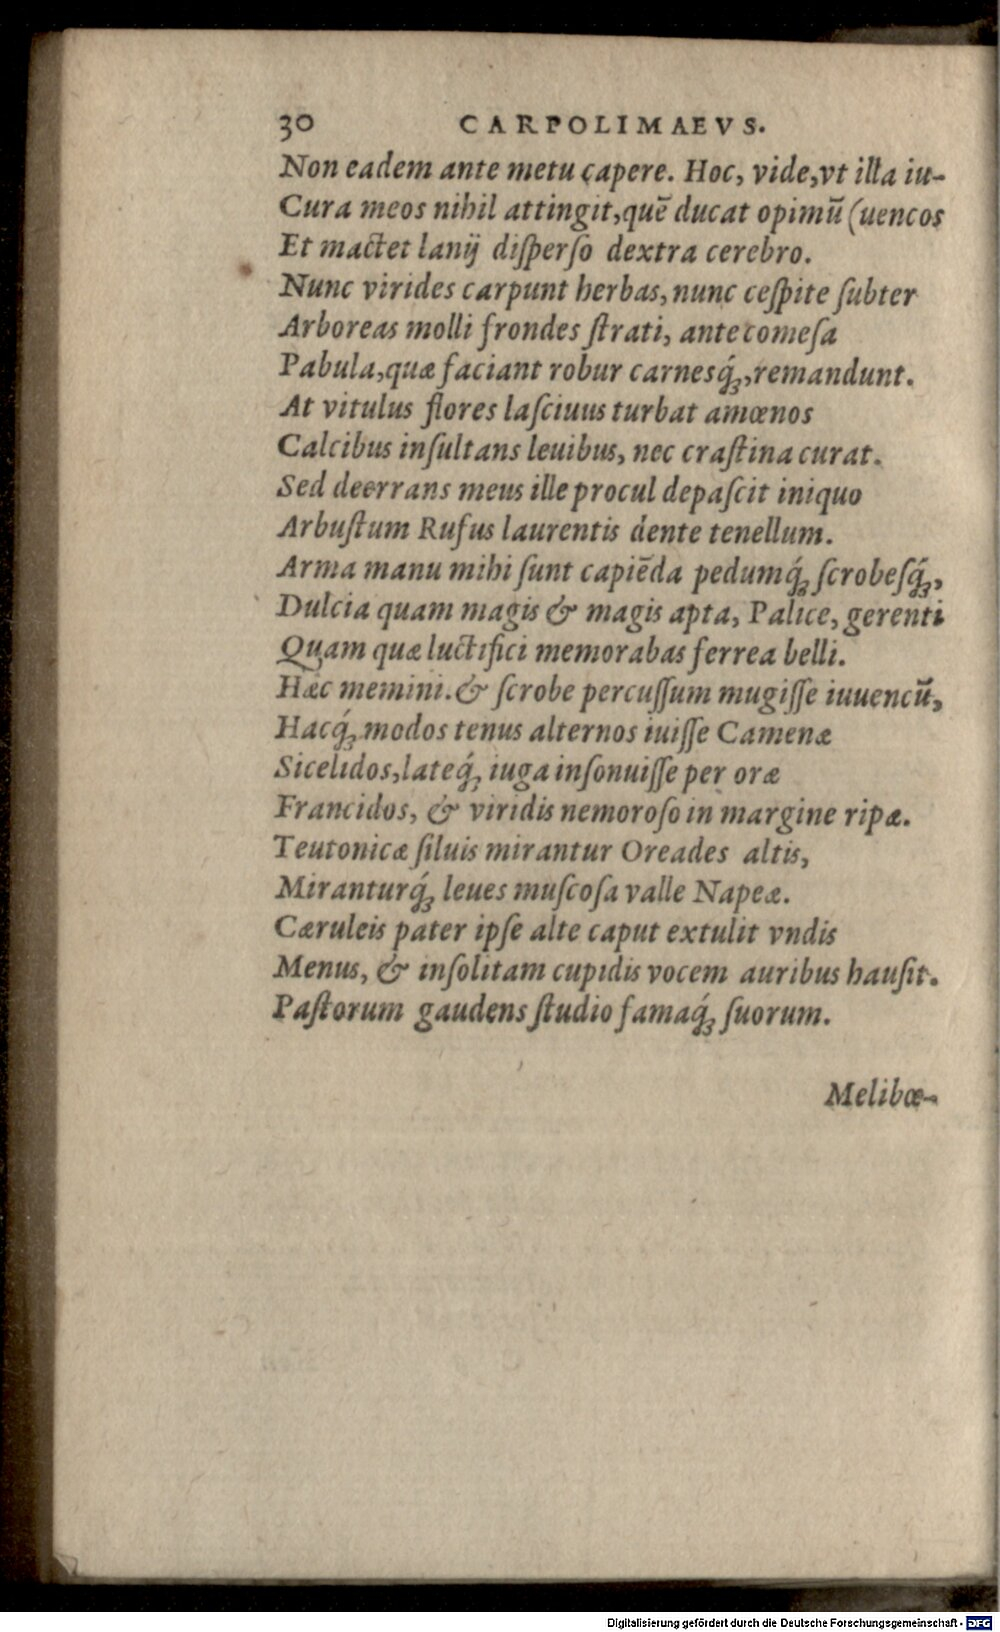 30 CARPOLIMAEVS.
Non eadem ante metu capere. Hoc, vide,vt illa iu-
Cura meos nihil attingit,quē ducat opimū (uencos
Et mactet lanij diſperſo dextra cerebro.
Nunc virides carpunt herbas, nunc ceſpite ſubter
Arboreas molli frondes ſtrati, ante comeſa
Pabula,quæ faciant robur carnesq́;,remandunt.
At vitulus flores laſciuus turbat amœnos
Calcibus inſultans leuibus, nec craſtina curat.
Sed deerrans meus ille procul depaſcit iniquo
Arbuſtum Rufus laurentis dente tenellum.
Arma manu mihi ſunt capiēda pedumq́; ſcrobeſq́;,
Dulcia quam magis & magis apta, Palice, gerenti
Quam quæ luctifici memorabas ferrea belli.
Hæc memini.& ſcrobe percuſſum mugiſſe iuuencū,
Hacq́; modos tenus alternos iuiſſe Camenæ
Sicelidos,lateq́; iuga inſonuiſſe per oræ
Francidos, & viridis nemoroſo in margine ripæ.
Teutonicæ ſiluis mirantur Oreades altis,
Miranturq́; leues muſcoſa valle Napeæ.
Cæruleis pater ipſe alte caput extulit vndis
Menus, & inſolitam cupidis vocem auribus hauſit.
Paſtorum gaudens ſtudio famaq́; ſuorum.
Melibœ-
Digitalisierung gefördert durch die Deutsche Forschungsgemeinschaft - DFG